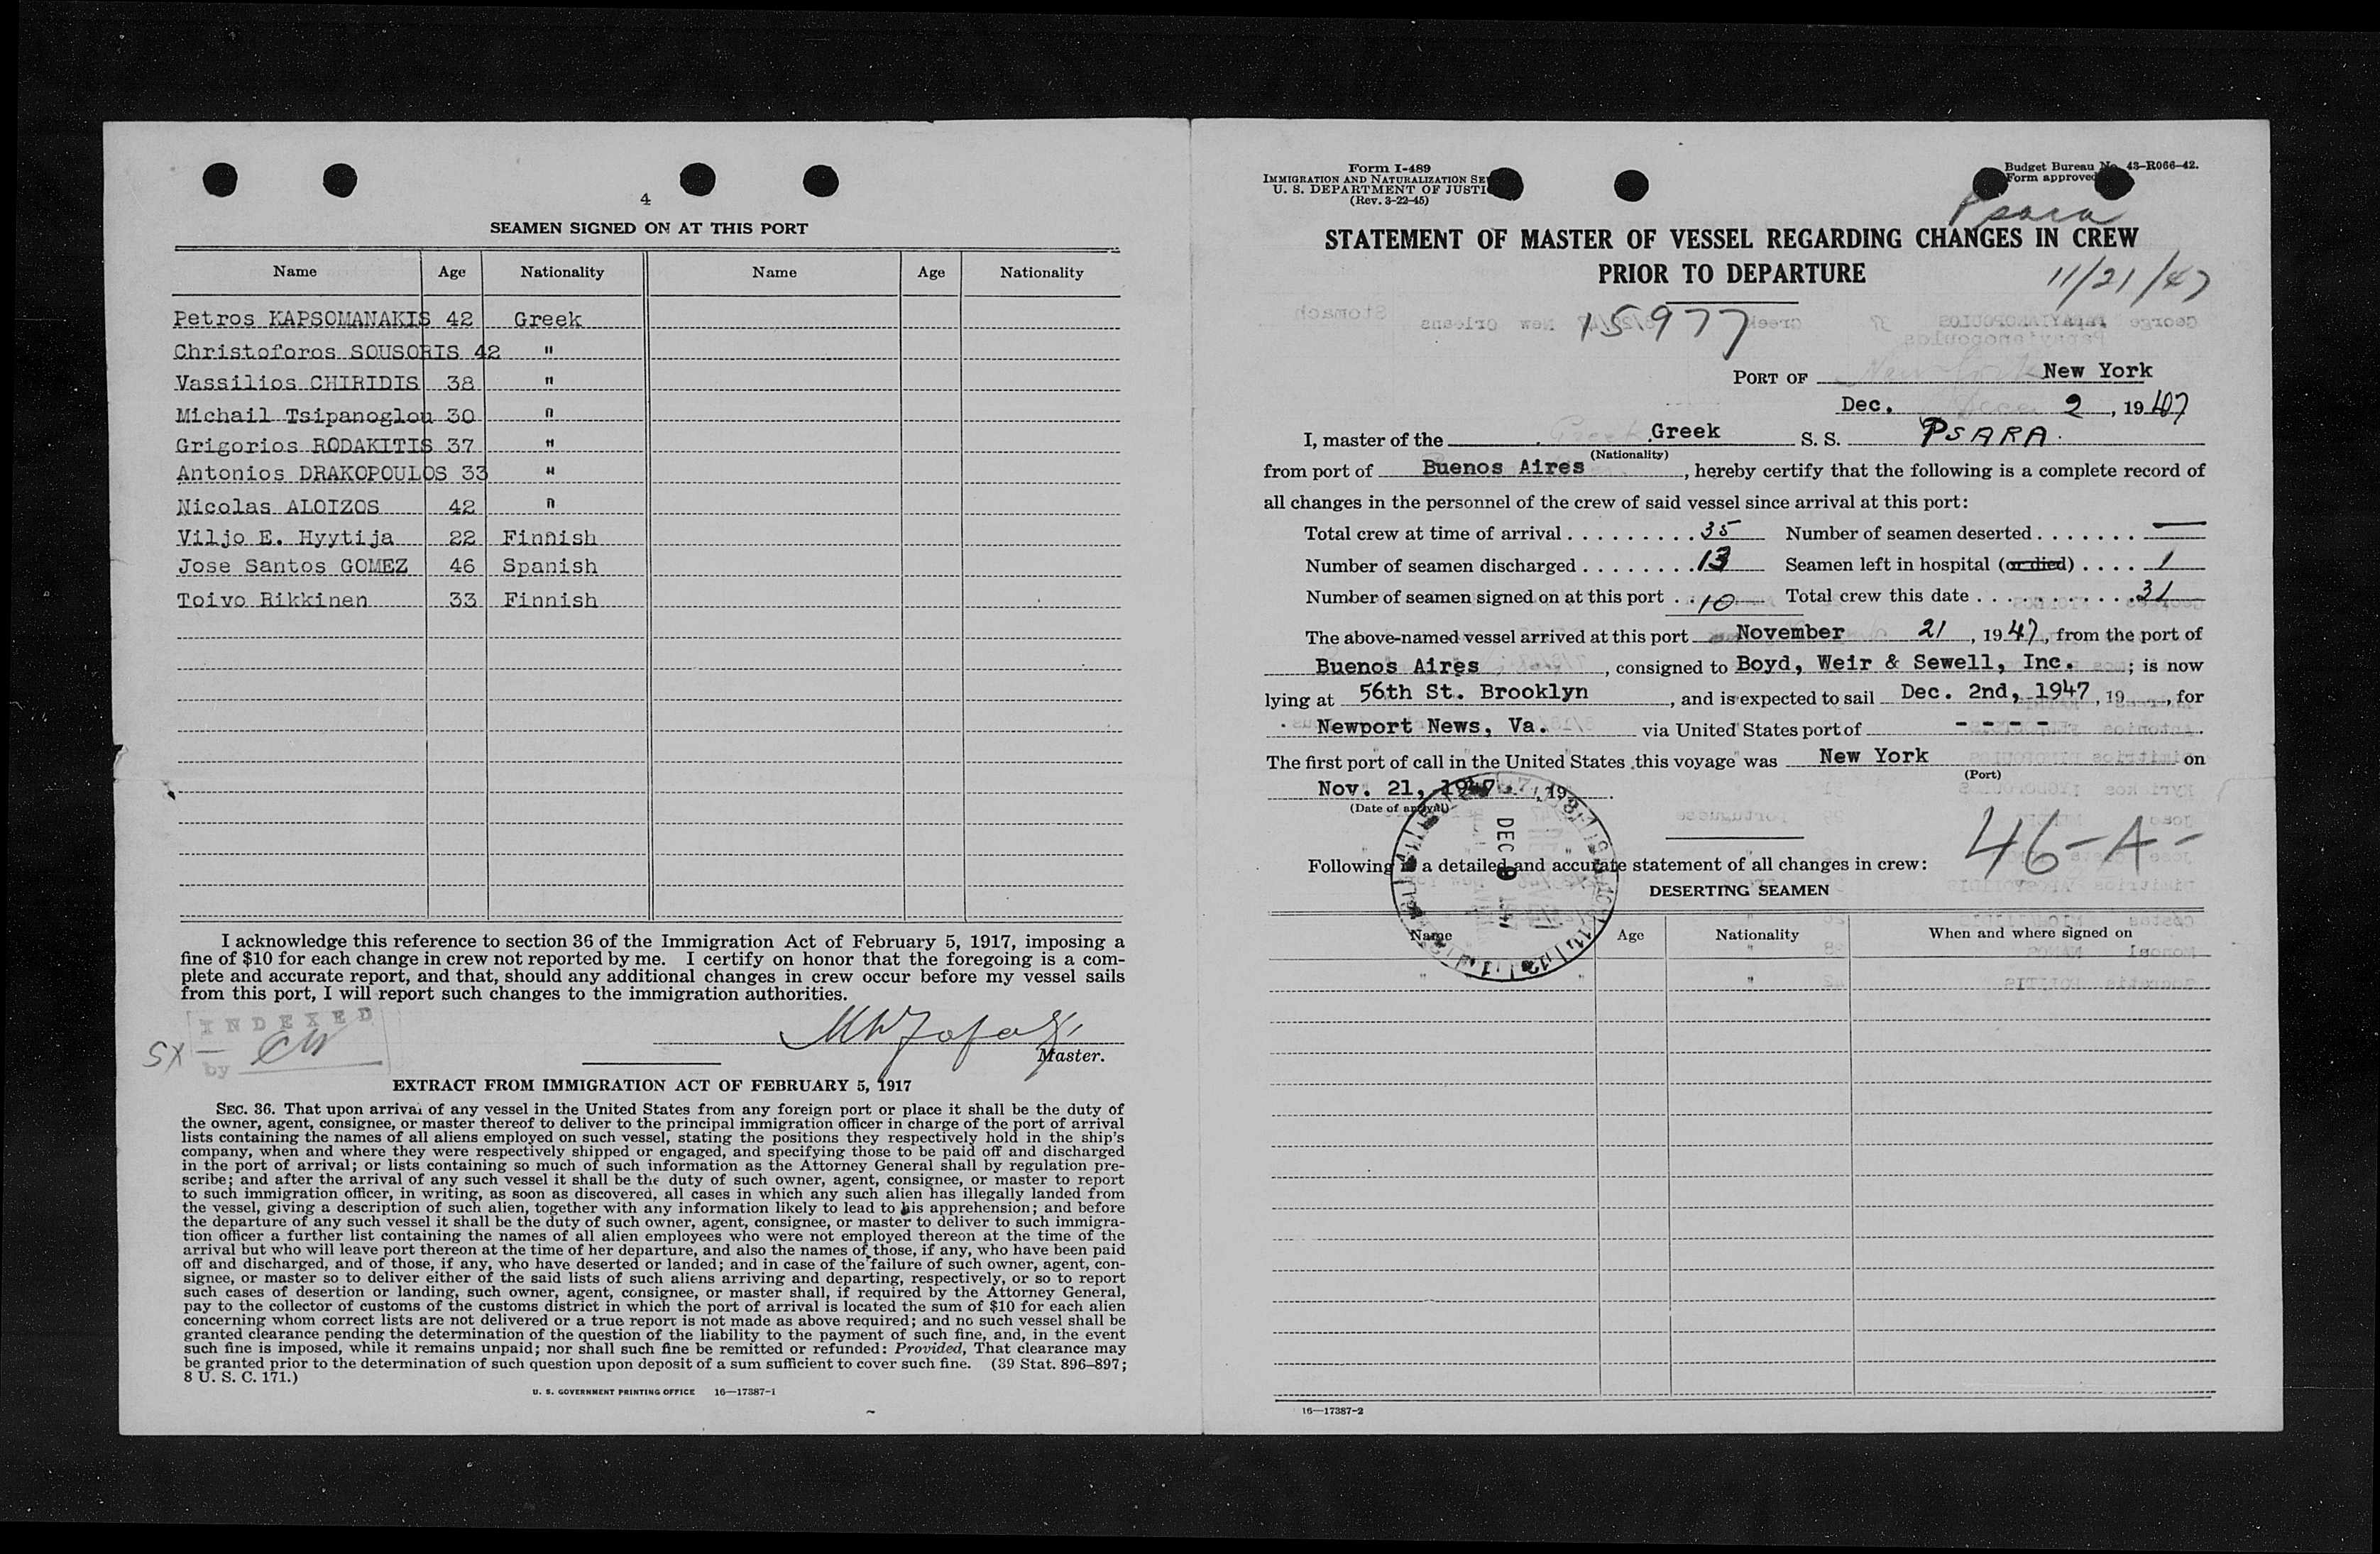 4
SEAMEN SIGNED ON AT THIS PORT
Name Age Nationality Name Age Nationality
Petros KAPSOMANAKIS 42 Greek
Christoforos SOUSORIS 42 "
Vassilios CHIRIDIS 38 "
Michail Tsipanoglou 30 "
Grigorios RODAKITIS 37 "
Antonios DRAKOPOULOS 33 "
Nicolas ALOIZOS 42 "
Viljo E. Hyytija 22 Finnish
Jose Santos GOMEZ 46 Spanish
Toivo Rikkinen 33 Finnish
I acknowledge this reference to section 36 of the Immigration Act of February 5, 1917, imposing a
fine of $10 for each change in crew not reported by me. I certify on honor that the foregoing is a com-
plete and accurate report, and that, should any additional changes in crew occur before my vessel sails
from this port, I will report such changes to the immigration authorities.
INDEXED
SX
by
Master.
EXTRACT FROM IMMIGRATION ACT OF FEBRUARY 5, 1917
SEC. 36. That upon arrival of any vessel in the United States from any foreign port or place it shall be the duty of
the owner, agent, consignee, or master thereof to deliver to the principal immigration officer in charge of the port of arrival
lists containing the names of all aliens employed on such vessel, stating the positions they respectively hold in the ship's
company, when and where they were respectively shipped or engaged, and specifying those to be paid off and discharged
in the port of arrival; or lists containing so much of such information as the Attorney General shall by regulation pre-
scribe; and after the arrival of any such vessel it shall be the duty of such owner, agent, consignee, or master to report
to such immigration officer, in writing, as soon as discovered, all cases in which any such alien has illegally landed from
the vessel, giving a description of such alien, together with any information likely to lead to his apprehension; and before
the departure of any such vessel it shall be the duty of such owner, agent, consignee, or master to deliver to such immigra-
tion officer a further list containing the names of all alien employees who were not employed thereon at the time of the
arrival but who will leave port thereon at the time of her departure, and also the names of those, if any, who have been paid
off and discharged, and of those, if any, who have deserted or landed; and in case of the failure of such owner, agent, con-
signee, or master so to deliver either of the said lists of such aliens arriving and departing, respectively, or so to report
such cases of desertion or landing, such owner, agent, consignee, or master shall, if required by the Attorney General,
pay to the collector of customs of the customs district in which the port of arrival is located the sum of $10 for each alien
concerning whom correct lists are not delivered or a true report is not made as above required; and no such vessel shall be
granted clearance pending the determination of the question of the liability to the payment of such fine, and, in the event
such fine is imposed, while it remains unpaid; nor shall such fine be remitted or refunded: Provided, That clearance may
be granted prior to the determination of such question upon deposit of a sum sufficient to cover such fine. (39 Stat. 896-897;
8 U. S. C. 171.)
U. S. GOVERNMENT PRINTING OFFICE 16—17387-1
Form I-489
IMMIGRATION AND NATURALIZATION SE
U. S. DEPARTMENT OF JUSTI
(Rev. 3-22-45)
Budget Bureau No. 43-R066-42.
Form approved
Psara
STATEMENT OF MASTER OF VESSEL REGARDING CHANGES IN CREW
PRIOR TO DEPARTURE
11/21/47
15977
PORT OF New York
Dec. 2, 1947
I, master of the Greek S. S. PSARA.
(Nationality)
from port of Buenos Aires, hereby certify that the following is a complete record of
all changes in the personnel of the crew of said vessel since arrival at this port:
Total crew at time of arrival . . . . . . . . . 35 Number of seamen deserted . . . . . . . —
Number of seamen discharged . . . . . . . . 13 Seamen left in hospital (or died) . . . . 1
Number of seamen signed on at this port . . 10 Total crew this date . . . . . . . . . . . 31
The above-named vessel arrived at this port November 21, 1947, from the port of
Buenos Aires, consigned to Boyd, Weir & Sewell, Inc. ; is now
lying at 56th St. Brooklyn, and is expected to sail Dec. 2nd, 1947, 19 , for
Newport News, Va. via United States port of - - - -.
The first port of call in the United States this voyage was New York on
(Port)
Nov. 21, 1947. , 19 .
(Date of arrival)
DEC 9 1947
Following is a detailed and accurate statement of all changes in crew:
46-A-
DESERTING SEAMEN
Name Age Nationality When and where signed on
16—17387-2